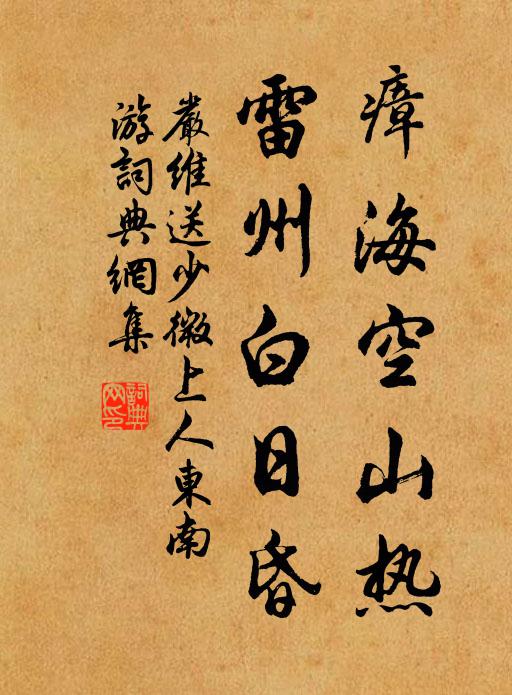 瘴海空山热
雷州白日昏
嚴維送少微上人東南
游詞典網集
詞典
网印